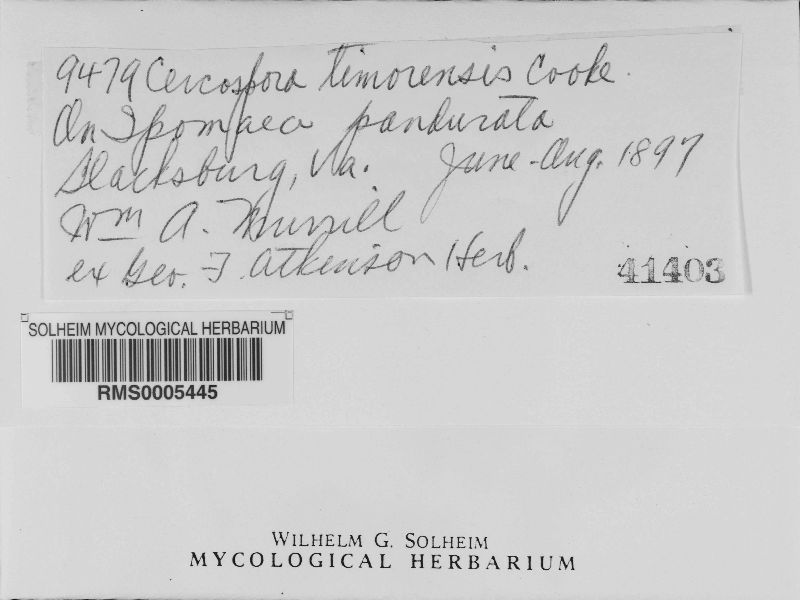 9479 Cercospora timorensis Cooke.
On Ipomaea pandurata
Blacksburg, Va. June-Aug. 1897
Wm A. Murrill
ex Geo. F. Atkinson Herb.
41403
SOLHEIM MYCOLOGICAL HERBARIUM
RMS0005445
WILHELM G. SOLHEIM
MYCOLOGICAL HERBARIUM